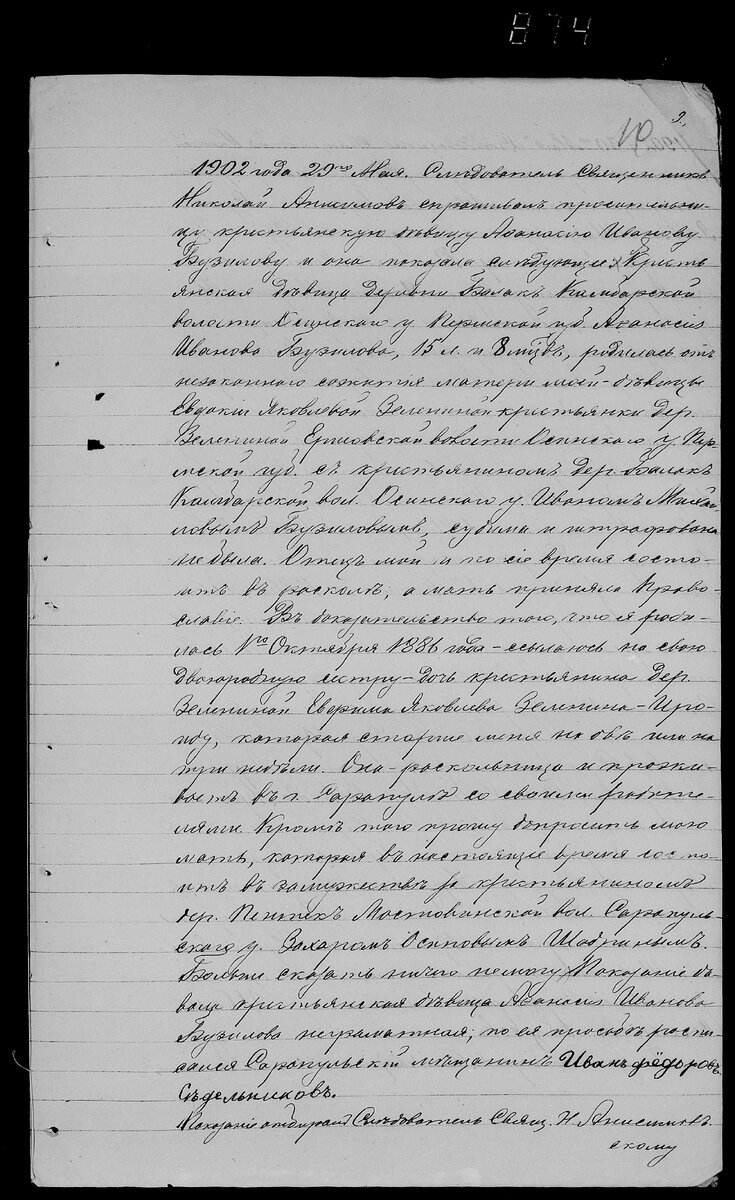 874
9.
10
1902 года 29го Мая. Следователь Священникъ
Николай Анисимовъ спрашивалъ просительни-
цу крестьянскую дѣвицу Аѳанасію Иванову
Бузилову и она показала слѣдующее: Кресть
янская дѣвица деревни Балакъ Камбарской
волости Осинскаго у Пермской губ. Аѳанасія
Иванова Бузилова, 15 л. и 8 мцвъ, родилась отъ
незаконнаго сожитія матери моей - дѣвицы
Евдокіи Яковлевой Зелениной крестьянки дер.
Зелениной Ершовской волости Осинскаго у. Пер-
мской губ. съ крестьяниномъ дер. Балакъ
Камбарской вол. Осинскаго у. Иваномъ Михаи-
ловымъ Бузиловымъ, судима и штрафована
не была. Отецъ мой и по сіе время состо-
итъ въ расколѣ, а мать приняла Право-
славіе. Въ доказательство того, что я роди-
лась 1го Октября 1886 года - ссылаюсь на свою
двоюродную сестру - дочь крестьянина дер.
Зелениной Евфима Яковлева Зеленина - Иро-
иду, которая старше меня на двѣ или на
три недѣли. Она - раскольница и прожи-
ваетъ въ г. Сарапулѣ со своими родите-
лями. Кромѣ того прошу допросить мою
мать, которая въ настоящее время состо-
итъ въ замужествѣ за крестьяниномъ
дер. Пентекъ Мостованской вол. Сарапуль-
скаго у. Захаромъ Осиповымъ Шадринымъ.
Больше сказать ничего немогу. Показаніе да-
вала крестьянская дѣвица Аѳанасія Иванова
Бузилова неграматная; по ея просьбѣ роспи-
сался Сарапульскій мѣщанинъ Иванъ Фёдоровъ
Сѣдельниковъ.
Показаніе отбиралъ Слѣдователь Свящ. Н Анисимовъ.